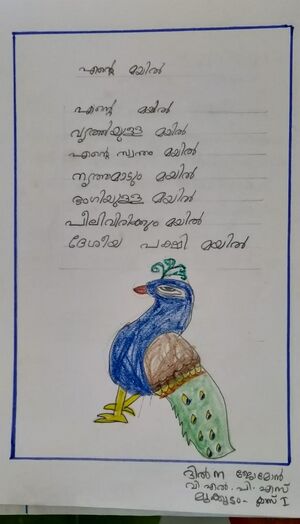 എന്റെ മയിൽ
എന്റെ മയിൽ
വൃത്തിയുള്ള മയിൽ
എന്റെ സ്വന്തം മയിൽ
നൃത്തമാടും മയിൽ
ഭംഗിയുള്ള മയിൽ
പീലിവിരിക്കും മയിൽ
ദേശീയ പക്ഷി മയിൽ
ദിൽന ജോമോൻ
വി. എൽ. പി. എസ്
ക്ലാസ് I